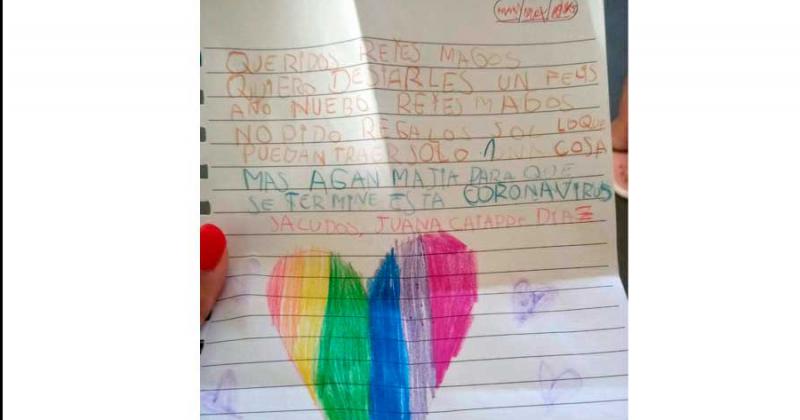 QUERIDOS REYES MAGOS
QUIERO DESIARLES UN FELIS
AÑO NUEBO REYES MAGOS
NO PIDO REGALOS SOL LOQUE
PUEDAN TRAER SOLO 1 UNA COSA
MAS AGAN MAJIA PARA QUE
SE TERMINE ESTA CORONAVIRUS
SALUDOS, JUANA DIAZ